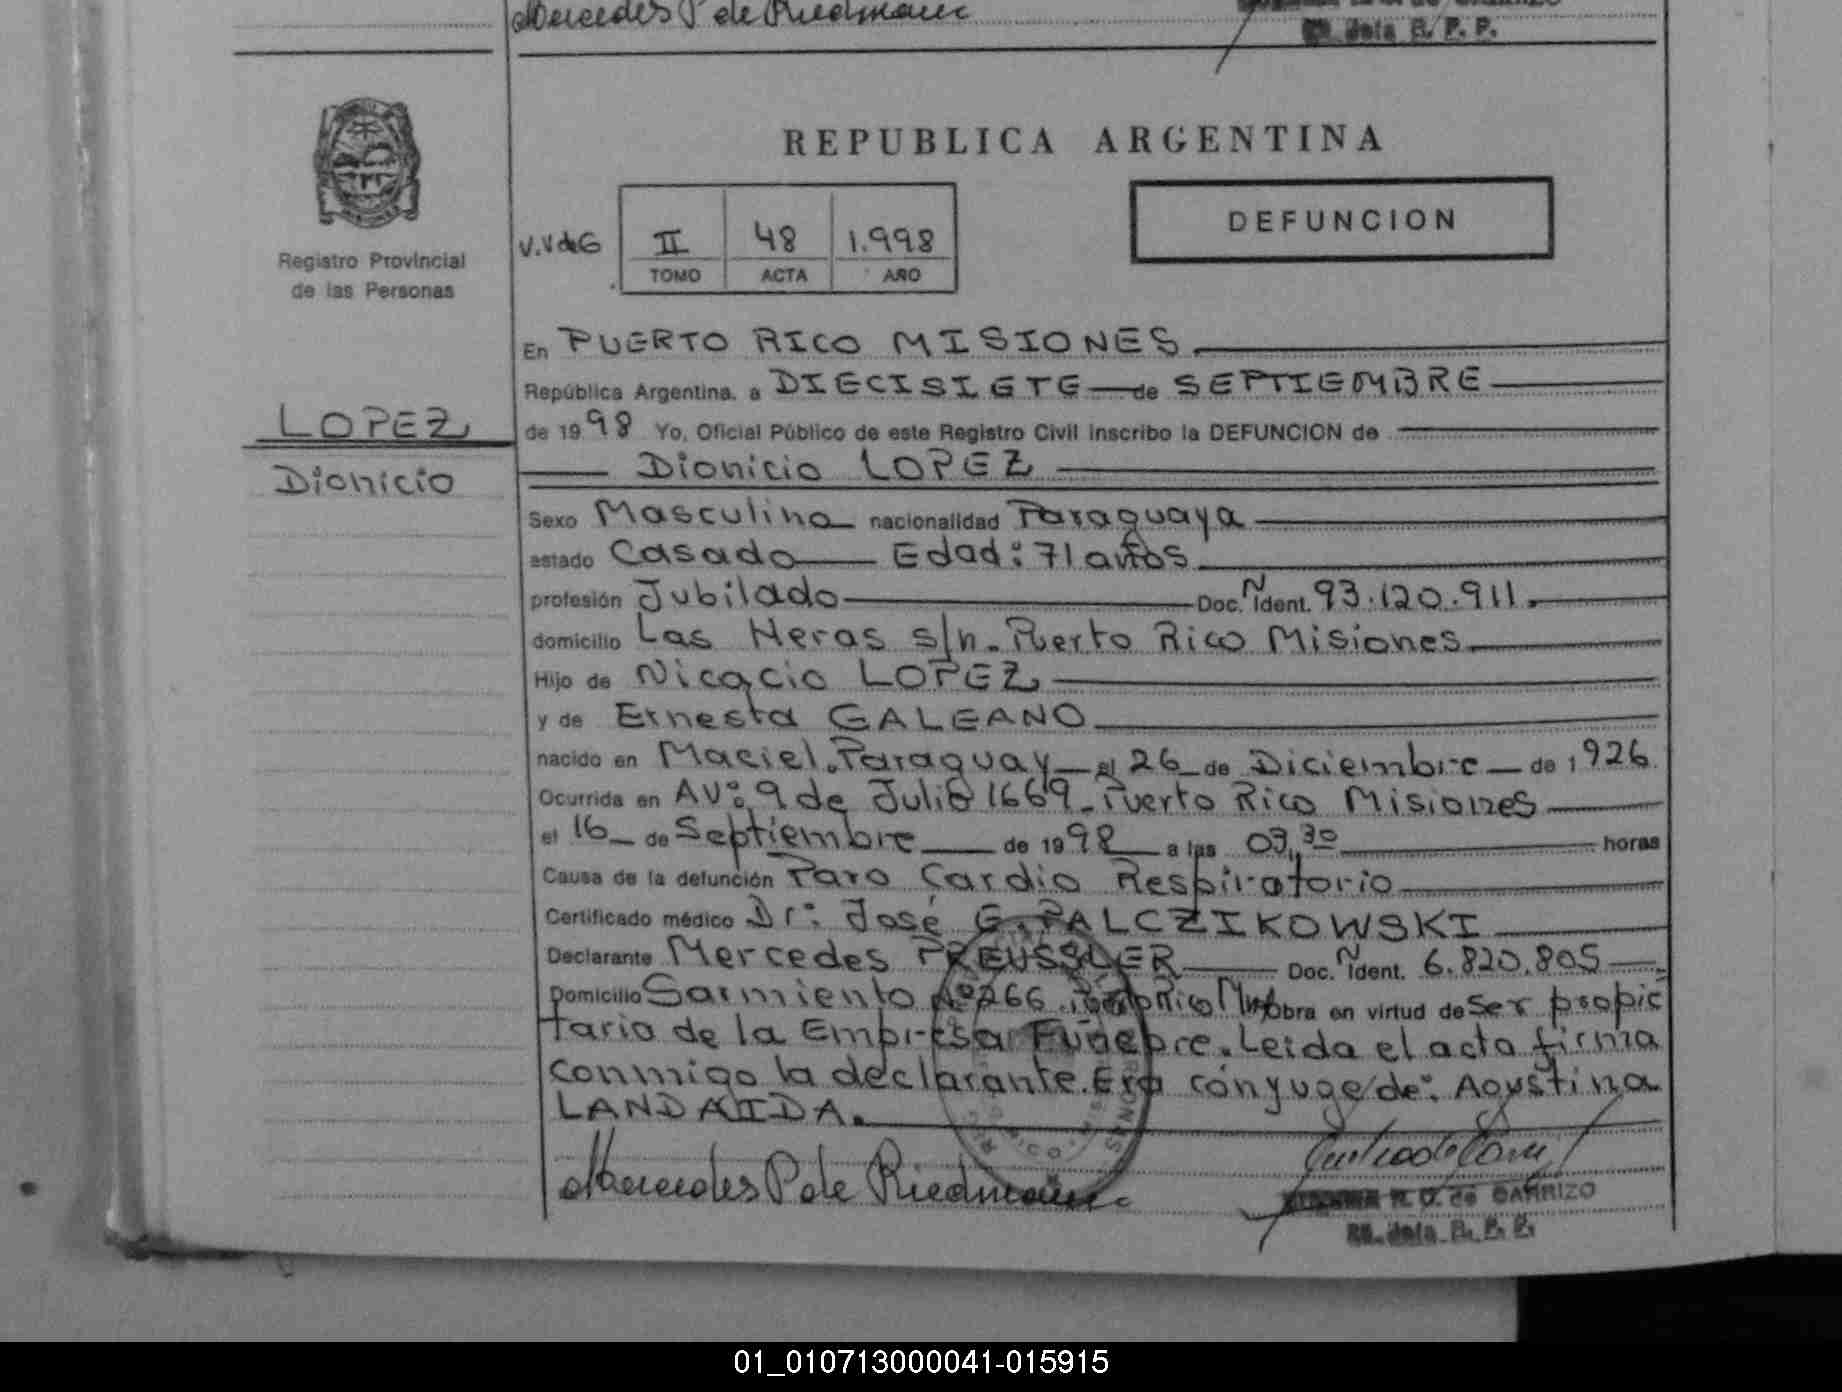 Mercedes P de Riedmann
R. P. P.
REPUBLICA ARGENTINA
DEFUNCION
V.V de G
II 48 1.998
TOMO ACTA AÑO
Registro Provincial
de las Personas
LOPEZ
Dionicio
En PUERTO RICO MISIONES
República Argentina, a DIECISIETE de SEPTIEMBRE
de 1998 Yo, Oficial Público de este Registro Civil inscribo la DEFUNCION de
Dionicio LOPEZ
Sexo Masculino nacionalidad Paraguaya
estado Casado Edad: 71 años
profesión Jubilado Doc. Ñ Ident. 93.120.911.
domicilio Las Heras s/n. Puerto Rico Misiones
Hijo de Nicacio LOPEZ
y de Ernesta GALEANO
nacido en Maciel. Paraguay el 26 de Diciembre de 1926
Ocurrida en AV: 9 de Julio 1669. Puerto Rico Misiones
el 16 de Septiembre de 1998 a las 03,30 horas
Causa de la defunción Paro Cardio Respiratorio
Certificado médico Dr: José G. PALCZIKOWSKI
Declarante Mercedes PREUSSLER Doc. Ñ Ident. 6.820.805
Domicilio Sarmiento Nº 266. Pto Rico Mnes obra en virtud de ser propie
taria de la Empresa Fúnebre. Leida el acta firma
conmigo la declarante. Era cónyuge de: Agustina
LANDAIDA.
Mercedes P de Riedmann
R. O. de CARRIZO
R. P. P.
01_010713000041-015915